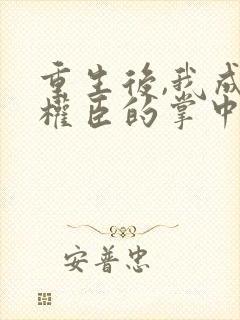 重生後,我成
權臣的掌中
安普忠